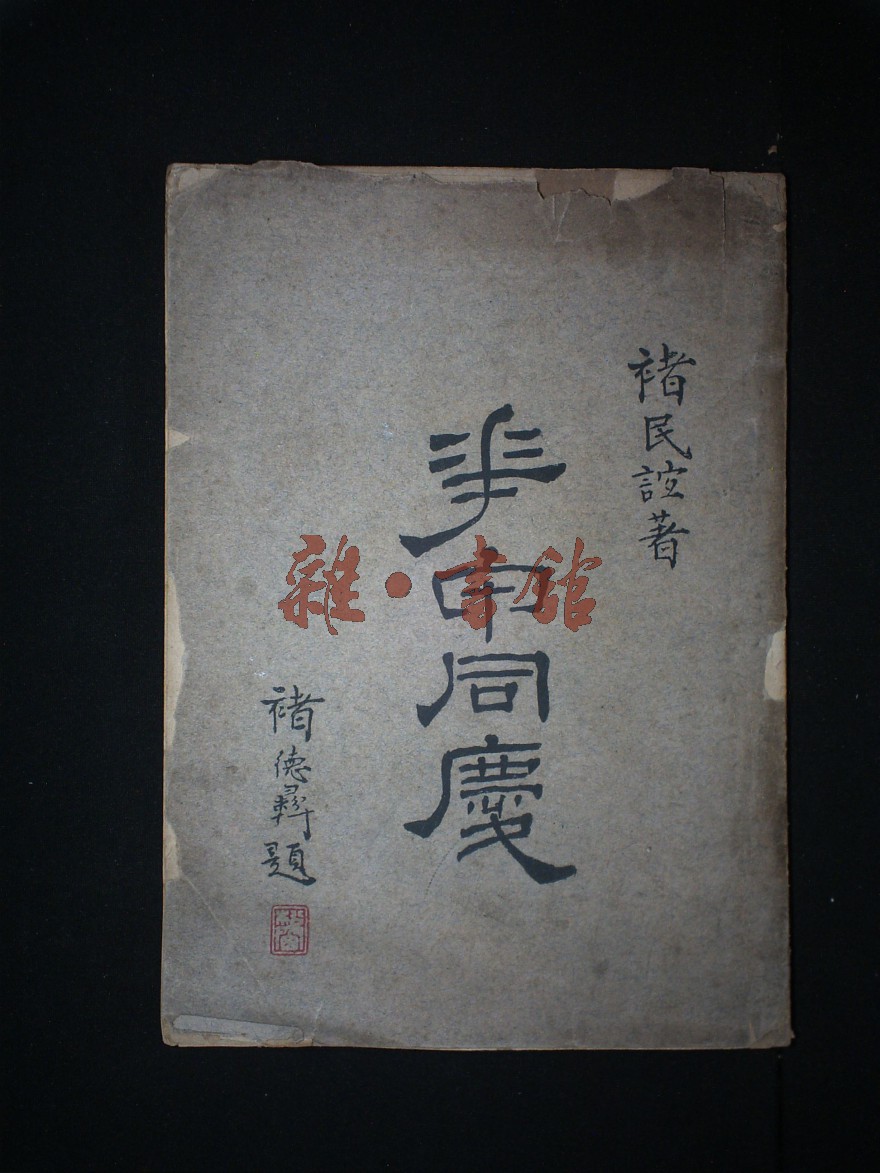 褚民誼著
華甲同慶
褚德彝題
雜·書館